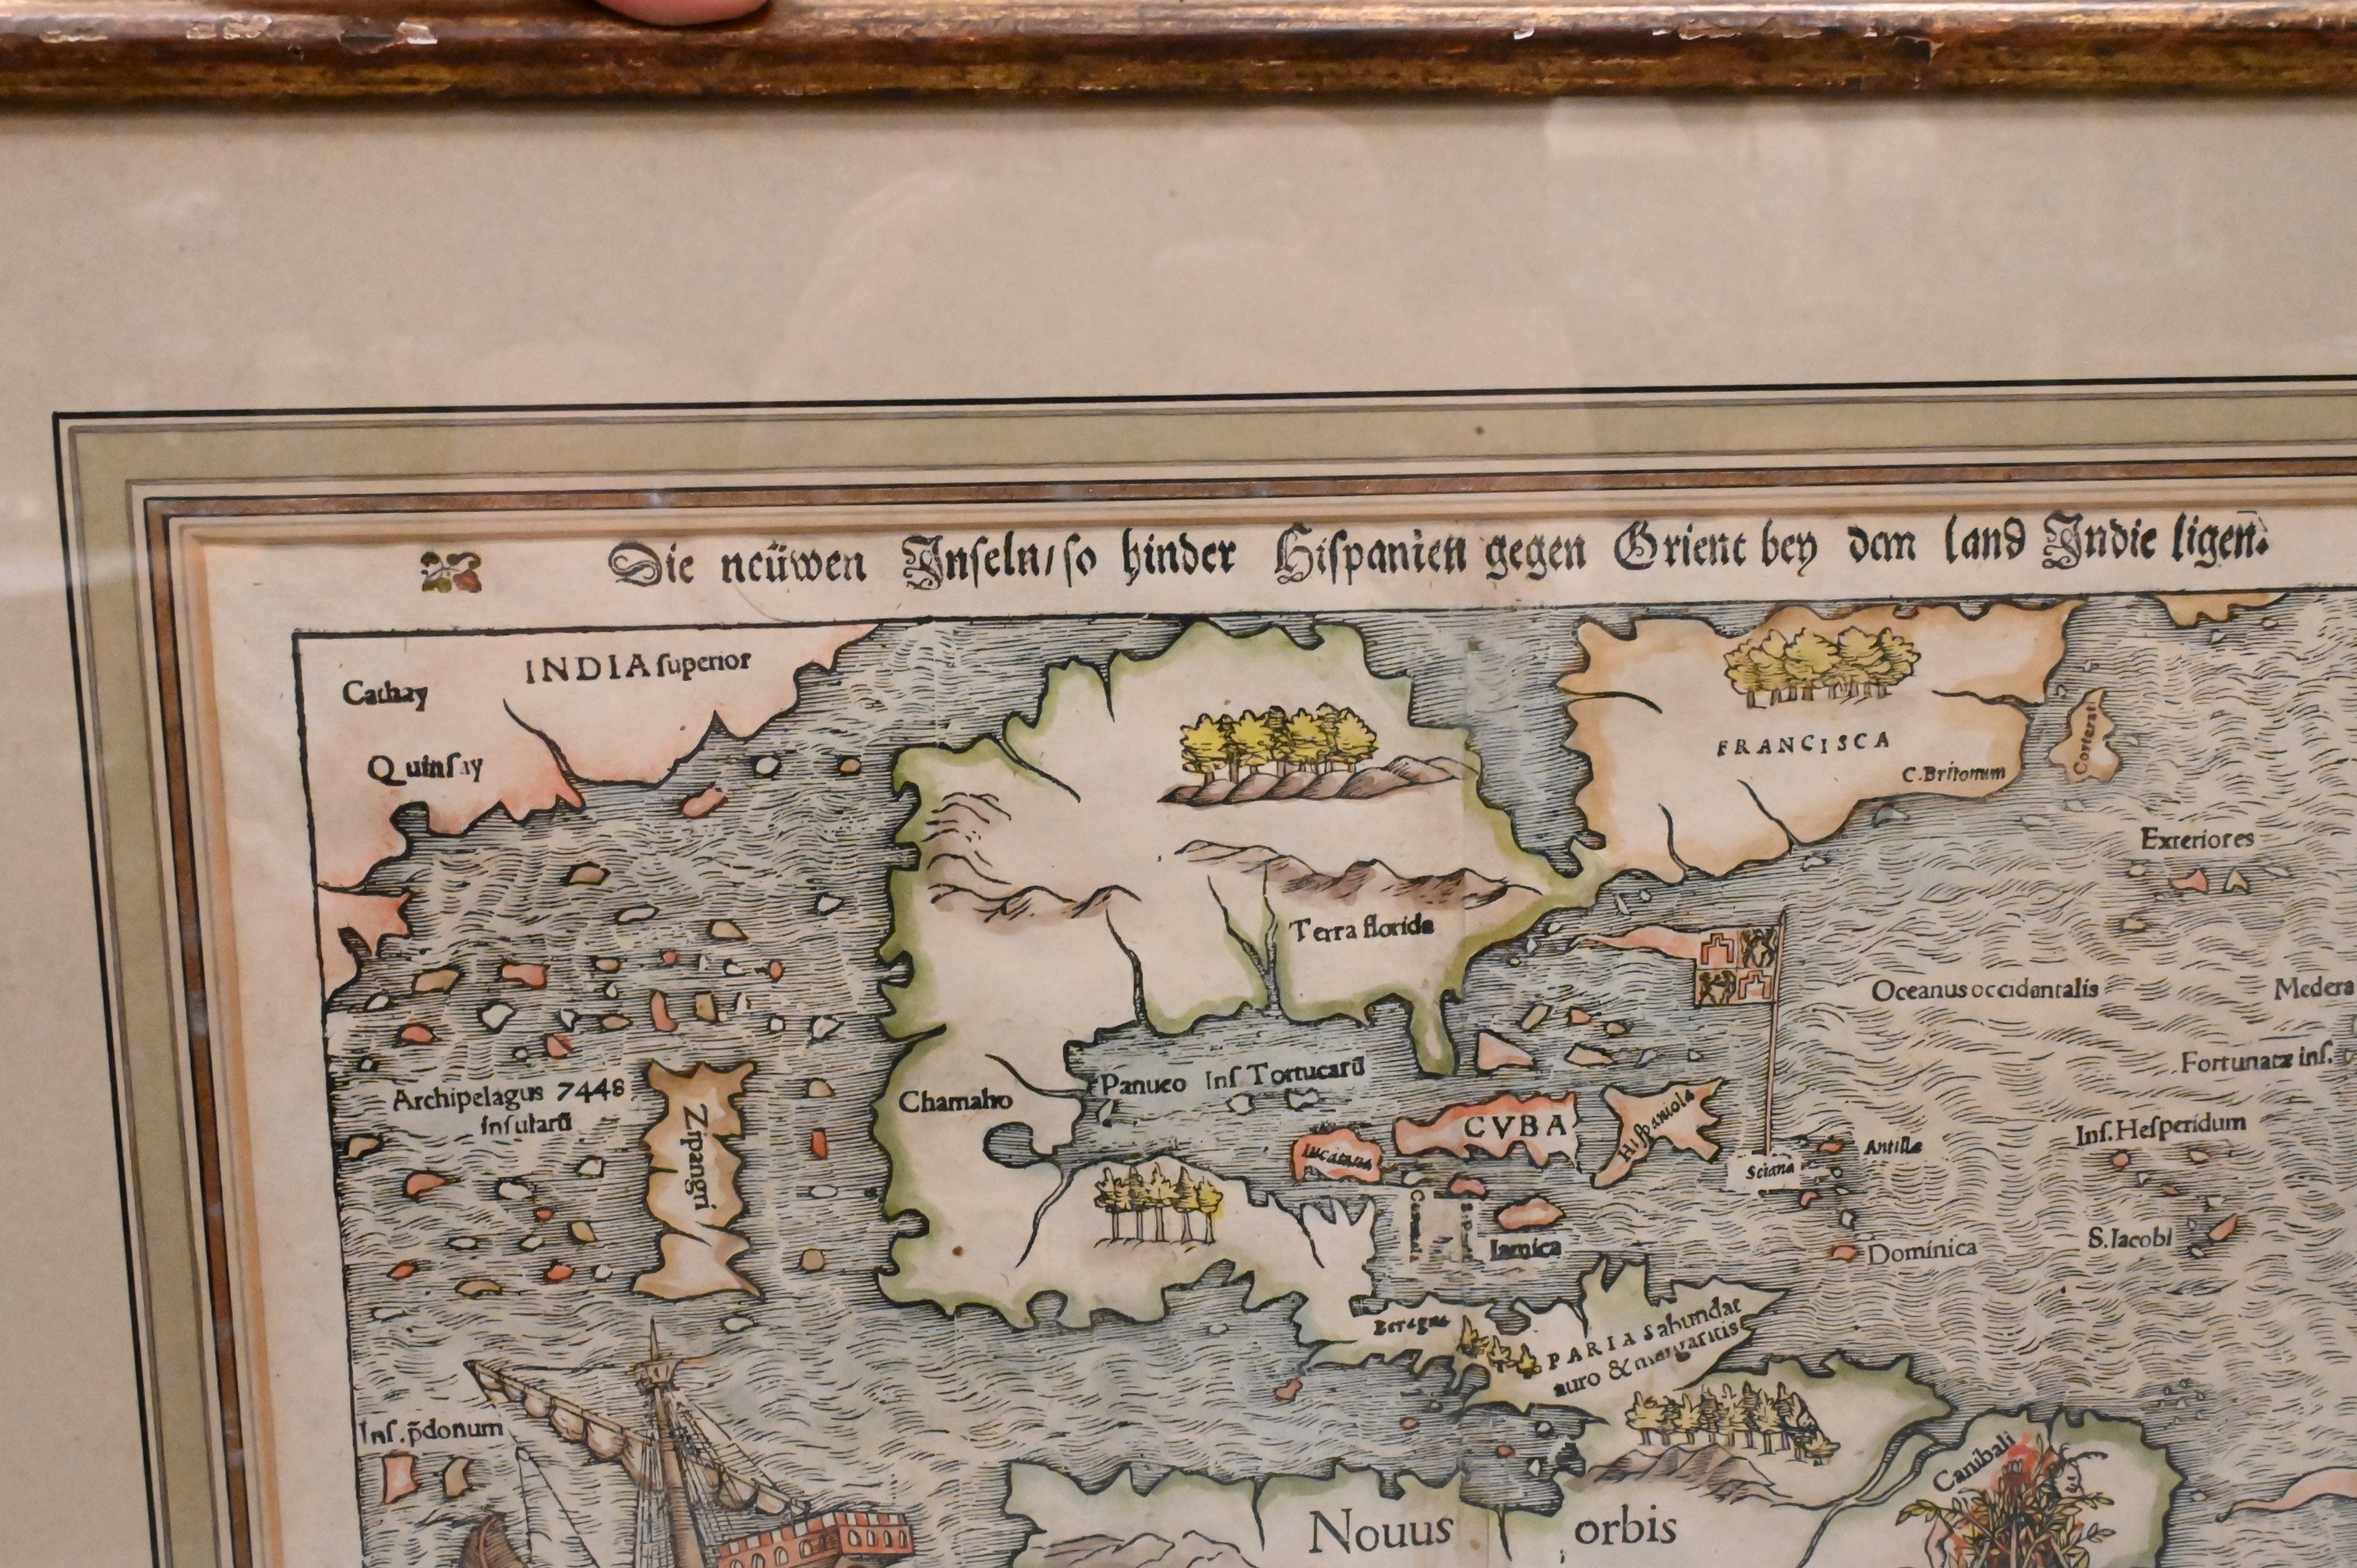 Die neüwen Inseln / so hinder Hispanien gegen Orient bey dem land Indie ligen.
INDIA superior
Cathay
Quinsay
FRANCISCA
C. Britonum
Corterati
Exteriores
Terra florida
Oceanus occidentalis
Medera
Fortunatæ ins.
Archipelagus 7448
insularū
Zipangri
Chamaho
Panuco
Ins Tortucarū
CVBA
Hispaniola
Iucatana
Sciana
Antillæ
Ins. Hesperidum
Iamica
Dominica
S. Iacobi
PARIAS abundat
auro & margaritis
Ins. p̄donum
Canibali
Nouus orbis